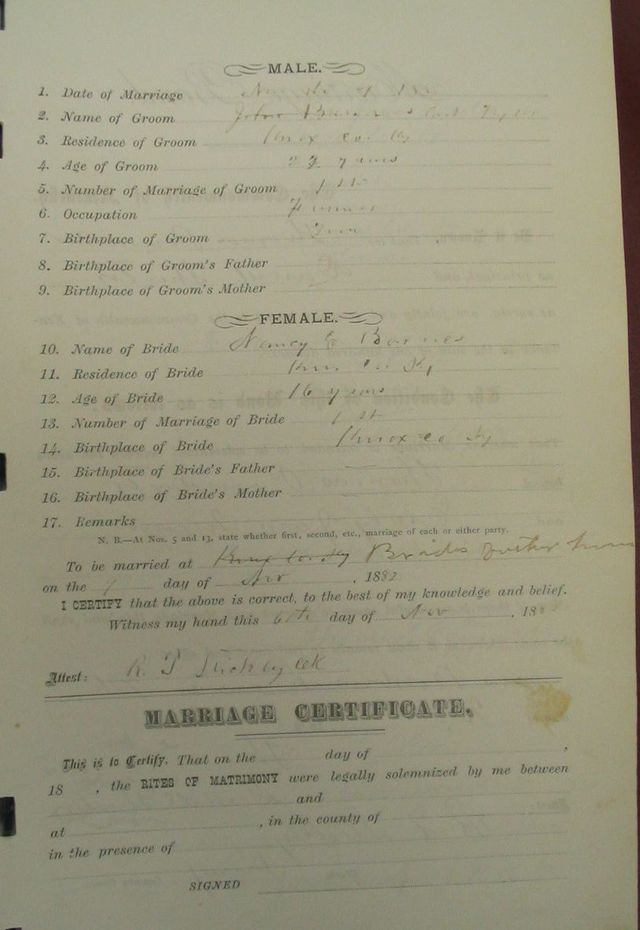 MALE.
1. Date of Marriage
2. Name of Groom John
3. Residence of Groom Knox co Ky
4. Age of Groom years
5. Number of Marriage of Groom 1 st
6. Occupation Farmer
7. Birthplace of Groom
8. Birthplace of Groom's Father
9. Birthplace of Groom's Mother
FEMALE.
10. Name of Bride Nancy E Barnes
11. Residence of Bride Knox Co Ky
12. Age of Bride 16 years
13. Number of Marriage of Bride 1 st
14. Birthplace of Bride Knox co Ky
15. Birthplace of Bride's Father
16. Birthplace of Bride's Mother
17. Remarks
N. B.—At Nos. 5 and 13, state whether first, second, etc., marriage of each or either party.
To be married at Knox Co Ky Brides father
on the 7 day of Nov , 1882
I CERTIFY that the above is correct, to the best of my knowledge and belief.
Witness my hand this 6th day of Nov , 188
Attest:
MARRIAGE CERTIFICATE.
This is to Certify, That on the day of ,
18 , the RITES OF MATRIMONY were legally solemnized by me between
and
at , in the county of
in the presence of
SIGNED